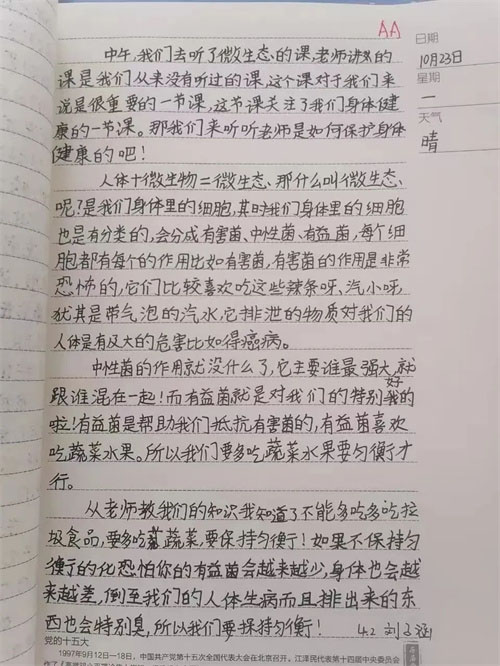 AA
日期
10月23日
星期
一
天气
晴
中午,我们去听了微生态的课,老师讲的
课是我们从来没有听过的课,这个课对于我们来
说是很重要的一节课,这节课关注了我们身体健
康的一节课。那我们来听听老师是如何保护身体
健康的吧!
人体十微生物=微生态、那什么叫微生态、
呢?是我们身体里的细胞,其时我们身体里的细胞
也是有分类的,会分成有害菌、中性菌、有益菌,每个细
胞都有每个的作用比如有害菌,有害菌的作用是非常
恐怖的,它们比较喜欢吃这些辣条呀、汽小呀,
犹其是带气泡的汽水,它排泄的物质对我们的
人体是有很大的危害比如得癌病。
中性菌的作用就没什么了,它主要谁最强大,就
跟谁混在一起!而有益菌就是对我们的特别好的
啦!有益菌是帮助我们抵抗有害菌的,有益菌喜欢
吃蔬菜水果。所以我们要多吃蔬菜水果要匀衡才
行。
从老师教我们的知识我知道了不能多吃多吃垃
圾食品,要多吃蔬菜,要保持匀衡!如果不保持匀
衡的化恐怕你的有益菌会越来越少,身体也会越
来越差,倒至我们的人体生病而且排出来的东
西也会特别臭,所以我们要保持匀衡!
4.2 刘
党的十五大
1997年9月12日—18日,中国共产党第十五次全国代表大会在北京召开,江泽民代表第十四届中央委员会